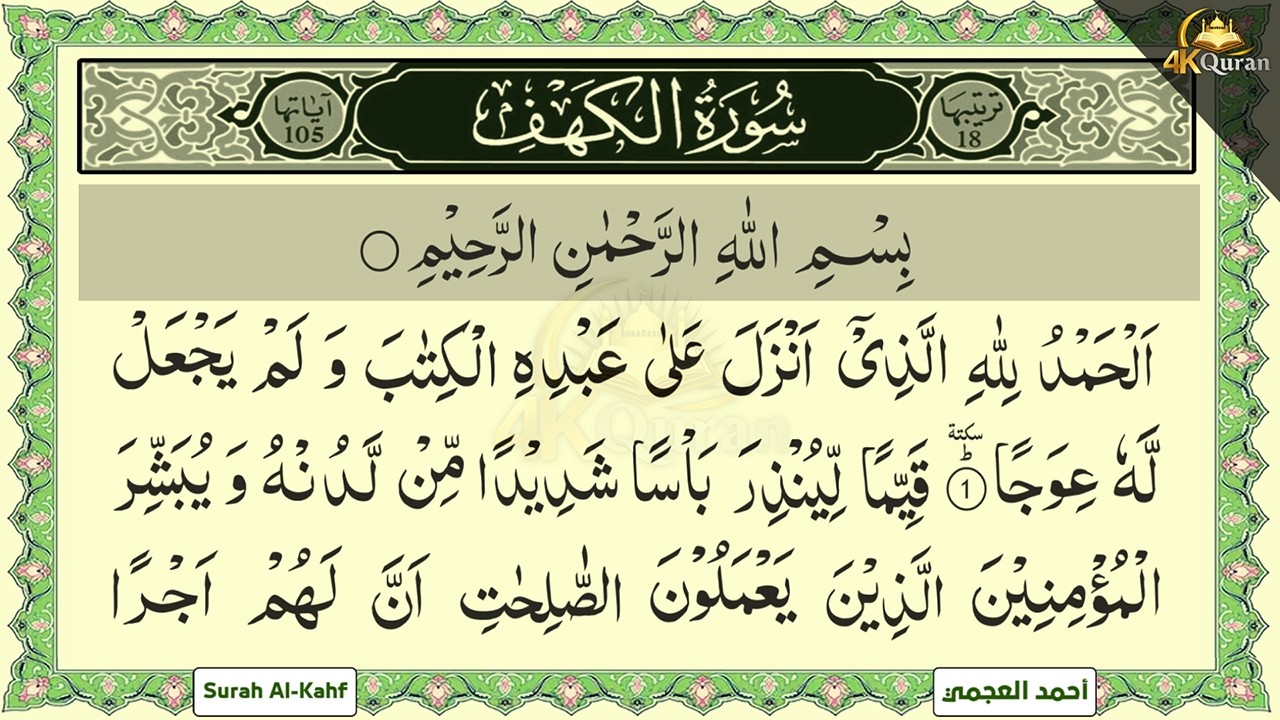 4KQuran
آياتها
105
سُورَةُ الكَهَف
ترتيبها
18
بِسْمِ اللّٰهِ الرَّحْمٰنِ الرَّحِيْمِ ○
اَلْحَمْدُ لِلّٰهِ الَّذِىْٓ اَنْزَلَ عَلٰى عَبْدِهِ الْكِتٰبَ وَ لَمْ يَجْعَلْ
لَّهٗ عِوَجًا سكتة ؕ ① قَيِّمًا لِّيُنْذِرَ بَاْسًا شَدِيْدًا مِّنْ لَّدُنْهُ وَ يُبَشِّرَ
الْمُؤْمِنِيْنَ الَّذِيْنَ يَعْمَلُوْنَ الصّٰلِحٰتِ اَنَّ لَهُمْ اَجْرًا
4KQuran
Surah Al-Kahf
أحمد العجمي